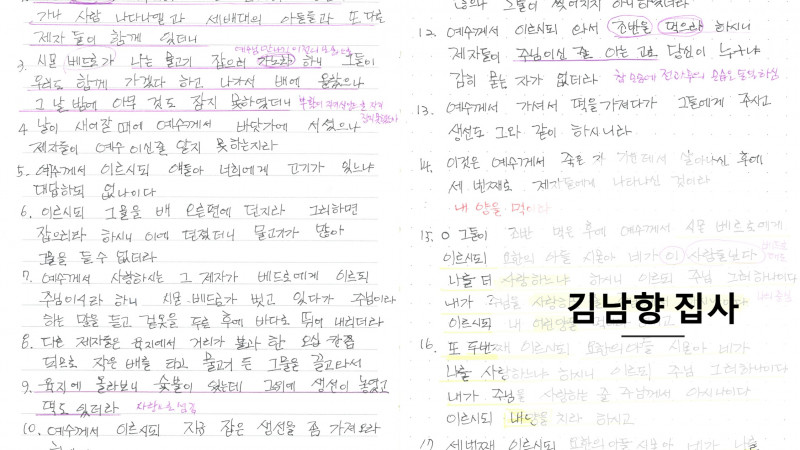 가나 사람 나다나엘과 세베대의 아들들과 또 다른
제자 둘이 함께 있더니
3. 시몬 베드로가 나는 물고기 잡으러 가노라 하니 그들이
우리도 함께 가겠다 하고 나가서 배에 올랐으나
그 날 밤에 아무 것도 잡지 못하였더니
4. 날이 새어갈 때에 예수께서 바닷가에 서셨으나
제자들이 예수 이신줄 알지 못하는지라
5. 예수께서 이르시되 얘들아 너희에게 고기가 있느냐
대답하되 없나이다
6. 이르시되 그물을 배 오른편에 던지라 그리하면
잡으리라 하시니 이에 던졌더니 물고기가 많아
그물을 들 수 없더라
7. 예수께서 사랑하시는 그 제자가 베드로에게 이르되
주님이시라 하니 시몬 베드로가 벗고 있다가 주님이라
하는 말을 듣고 겉옷을 두른 후에 바다로 뛰어 내리더라
8. 다른 제자들은 육지에서 거리가 불과 한 오십 칸쯤
되므로 작은 배를 타고 물고기 든 그물을 끌고 와서
9. 육지에 올라보니 숯불이 있는데 그 위에 생선이 놓였고
떡도 있더라
10. 예수께서 이르시되 지금 잡은 생선을 좀 가져오라
12. 예수께서 이르시되 와서 조반을 먹으라 하시니
제자들이 주님이신 줄 아는 고로 당신이 누구냐
감히 묻는 자가 없더라
13. 예수께서 가셔서 떡을 가져다가 그들에게 주시고
생선도 그와 같이 하시니라
14. 이것은 예수께서 죽은 자 가운데서 살아나신 후에
세 번째로 제자들에게 나타나신 것이라
내 양을 먹이라
15. 그들이 조반 먹은 후에 예수께서 시몬 베드로에게
이르시되 요한의 아들 시몬아 네가 이 사람들보다
나를 더 사랑하느냐 하시니 이르되 주님 그러하나이다
내가 주님을 사랑하는
이르시되 내 어린양을
김남향 집사
16. 또 두번째 이르시되 요한의 아들 시몬아 네가
나를 사랑하느냐 하시니 이르되 주님 그러하나이다
내가 주님을 사랑하는 줄 주님께서 아시나이다
이르시되 내 양을 치라 하시고
17. 세번째 이르시되 요한의 아들 시몬아 네가 나를